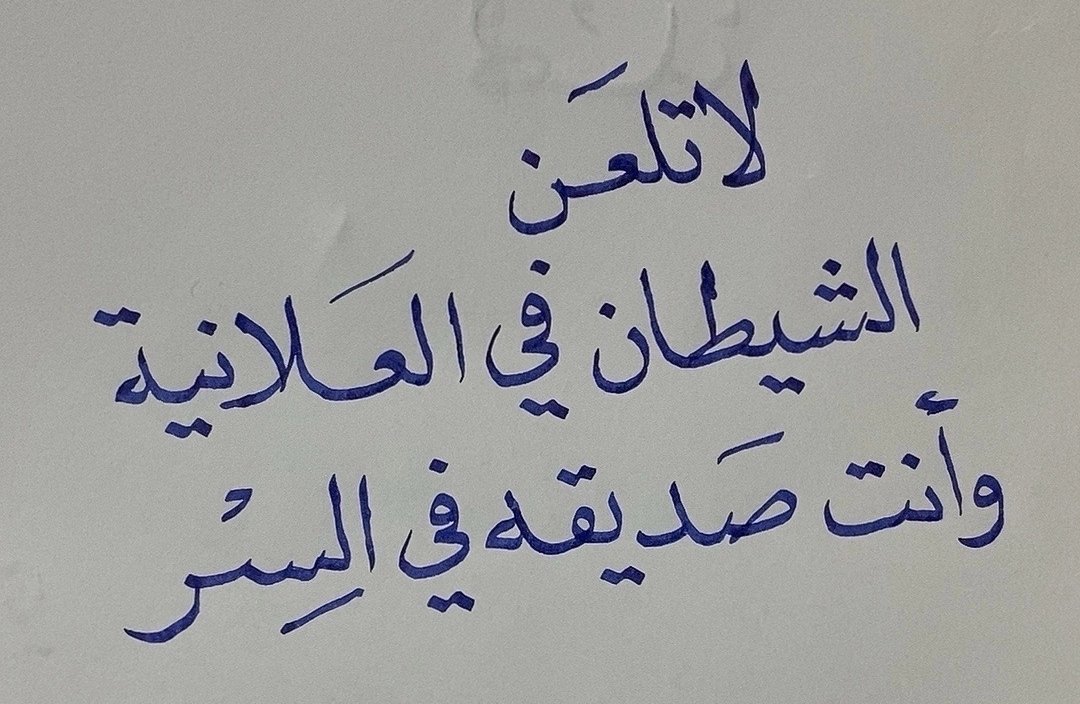 لا تلعَن
الشيطان في العَلانية
وأنت صَديقه في السِرْ